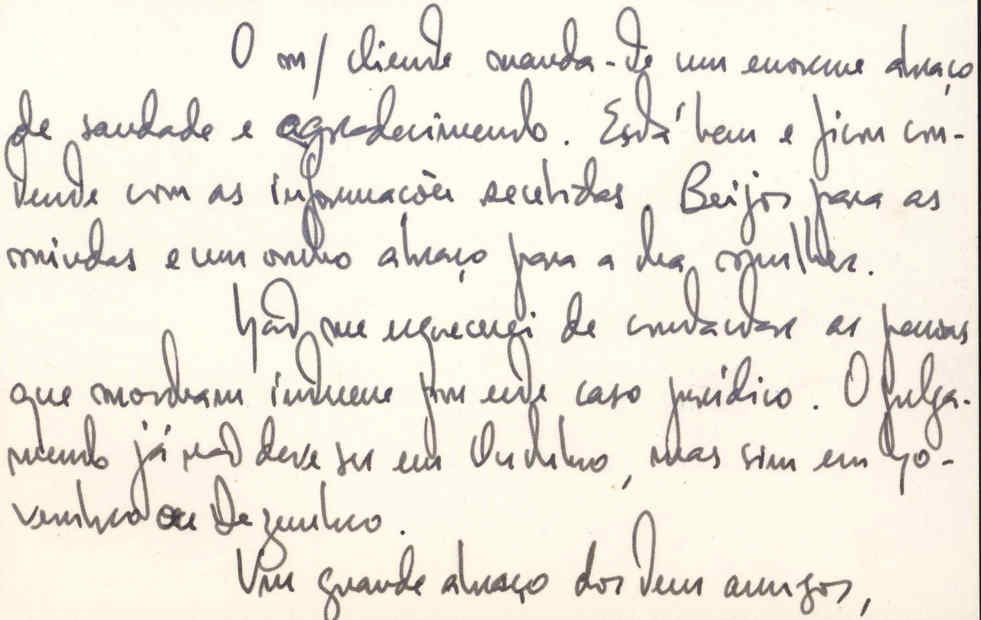 O m/ cliente manda-te um enorme abraço
de saudade e agradecimento. Está bem e ficou con-
tente com as informações recebidas. Beijos para as
miúdas e um outro abraço para a tua mulher.
Não me esquecerei de contactar as pessoas
que mostram interesse por este caso jurídico. O julga-
mento já não deve ser em Outubro, mas sim em No-
vembro ou Dezembro.
Um grande abraço dos teus amigos,